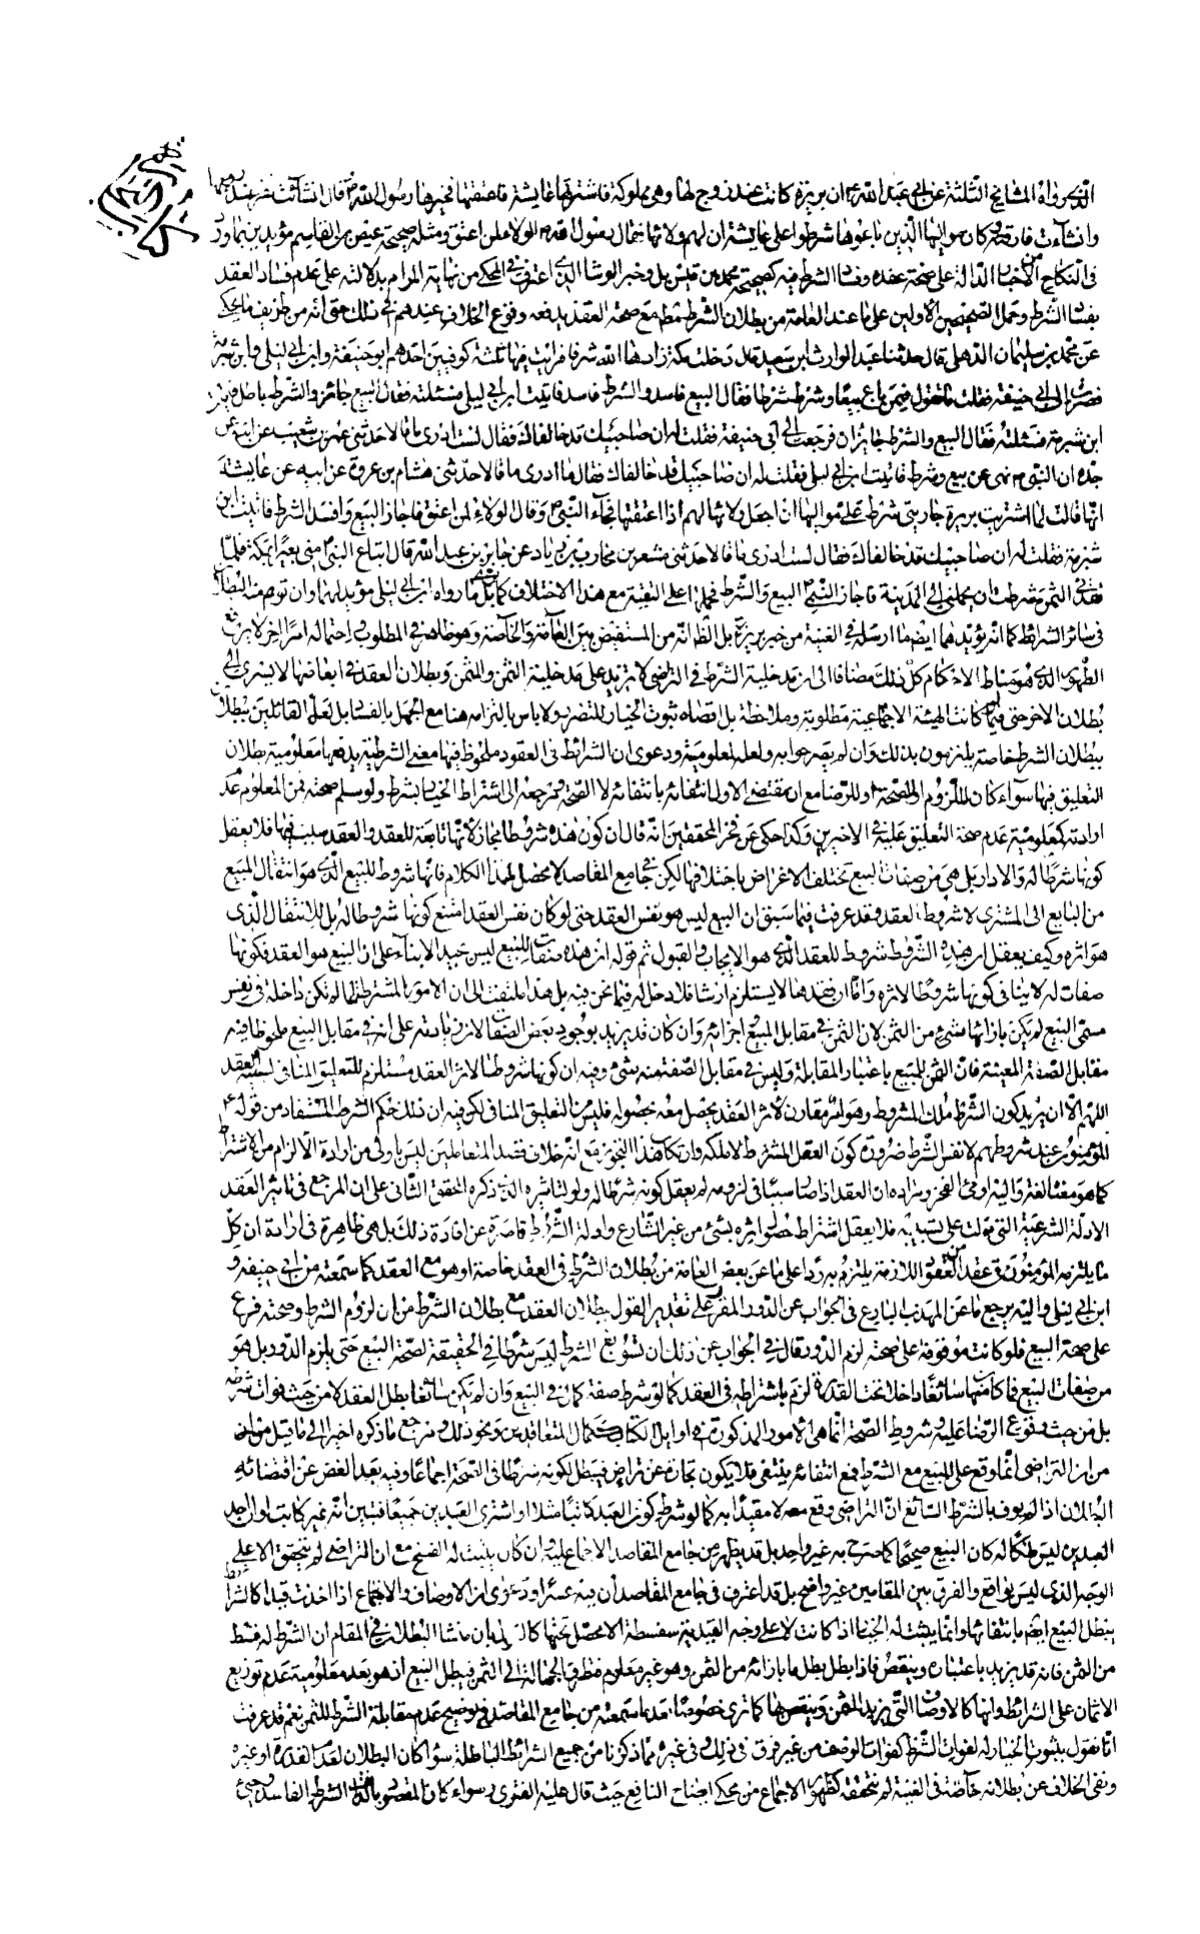 الذي رواه المشايخ الثلثة عن ابي عبد الله ع ان بريرة كانت عند زوج لها وهي مملوكة فاشترتها عايشة فاعتقتها فخيرها رسول الله ص قال ان شائت تقر عند زوجها
وان شاءت فارقته وكان مواليها الذين باعوها شرطوا على عايشة ان لهم ولائها فقال رسول الله ص الولاء لمن اعتق ومثله صحيحة عيص بن القاسم مؤيد بن بما ورد
في النكاح من الاخبار الدالة على صحة عقده وفساد الشرط فيه كصحيحة محمد بن قيس بل وخبر الوشا الذي اعترف في المحكي من نهاية المرام بدلالته على عدم فساد العقد
بفساد الشرط وحمل الصحيحين الاولين على ما عند العامة من بطلان الشرط فقط مع صحة العقد يدفعه وقوع الخلاف عندهم في ذلك حتى انه من طريف ما يحكى
عن محمد بن سليمان الذهلي قال حدثنا عبد الوارث ابن سعيد قال دخلت مكة زادها الله شرفا فرأيت فيها ثلثة كوفيين احدهم ابو حنيفة وابن ابي ليلى وابن شبرمة
فصرت الى ابي حنيفة فقلت ما تقول فيمن باع بيعا وشرط شرطا فقال البيع فاسد والشرط فاسد فاتيت ابن ابي ليلى فسئلته فقال البيع جائز والشرط باطل فاتيت
ابن شبرمة فسئلته فقال البيع والشرط جايزان فرجعت الى ابي حنيفة فقلت له ان صاحبيك قد خالفاك فقال لست ادري ما قالا حدثني عمرو بن شعيب عن ابيه عن
جده ان النبي ص نهى عن بيع وشرط فاتيت ابن ابي ليلى فقلت له ان صاحبيك قد خالفاك فقال ما ادري ما قالا حدثني هشام بن عروة عن ابيه عن عايشة
انها قالت لما اشتريت بريرة جاريتي شرط على مواليها ان اجعل ولائها لهم اذا اعتقتها فجاء النبي ص وقال الولاء لمن اعتق فاجاز البيع وافسد الشرط فاتيت ابن
شبرمة فقلت له ان صاحبيك قد خالفاك فقال لست ادري ما قالا حدثني مسعر بن محارب بن زياد عن جابر بن عبد الله قال ابتاع النبي ص مني بعيرا بمكة فلما
نقدني الثمن شرطت ان يحملني الى المدينة فاجاز النبي ص البيع والشرط فحملها على التقية مع هذا الاختلاف كما ترى بل ما رواه ابن ابي ليلى مؤيد لهما وان توهم منه البطلان
في سائر الشرائط كما انه يؤيدهما ايضا ما ارسله في الغنية من خبر بريرة بل الظ انه من المستفيض بين العامة والخاصة وهو ظاهر في المطلوب واحتماله امرا اخر لا يرفع
الظهور الذي هو مناط الاحكام كل ذلك مضافا الى ان مدخلية الشرط في التراضي لا تزيد على مدخلية الثمن والمثمن وبطلان العقد في ابعاضها لا يسري الى
بطلان الاخر حتى فيما كانت الهيئة الاجتماعية مطلوبة وملاحظة بل قصاه ثبوت الخيار للتضرر ولا باس بالتزامه هنا مع الجهل بالفساد بل لعل القائلين ببطلان
ببطلان الشرط خاصة يلتزمون بذلك وان لم يصرحوا به ولعله لمعلوميته ودعوى ان الشرائط في العقود ملحوظ فيها معنى الشرطية يدفعها معلومية بطلان
التعليق فيها سواء كان للزوم او للصحة او للرضا مع ان مقتضى الاول انتفائه بانتفائه لا الصحة فمرجعه الى اشتراط الخيار بشرط ولو سلم صحته فمن المعلوم عدم
ارادته كمعلومية عدم صحة التعليق عليه في الاخيرين وكذا حكي عن فخر المحققين انه قال ان كون هذه شروطا مجاز لانها تابعة للعقد والعقد سبب فيها فلا يعقل
كونها شرطا له والا دار بل هي من صفات البيع تختلف الاغراض باختلافها لكن في جامع المقاصد لا محصل لهذا الكلام فانها شروط للبيع الذي هو انتقال المبيع
من البايع الى المشتري لا شروط العقد وقد عرفت فيما سبق ان البيع ليس هو نفس العقد حتى لو كان نفس العقد امتنع كونها شروطا له بل للانتقال الذي
هو اثره وكيف يعقل ان هذه الشروط شروط للعقد الذي هو الايجاب والقبول ثم قوله ان هذه صفات للبيع ليس جيد الا بناء على ان البيع هو العقد فكونها
صفات له لا ينافي كونها شروطا لاثره واما ان فقدها لا يستلزم ارشا فلا دخل له فيما نحن فيه بل هذا ملتفت الى ان الامور المشترطة لما لم تكن داخلة في نفس
مسمى البيع لم يكن بازائها شيء من الثمن لان الثمن في مقابل المبيع اجزائه وان كان قد يزيد بوجود بعض الصفات لا ان زيادته على انه في مقابل المبيع ملحوظا فيه
مقابل الصفة المعينة فان الثمن للمبيع باعتبار المقابلة وليس في مقابل الصفة منه شيء وفيه ان كونها شروطا لاثر العقد مستلزم للتعليق المنافي لسببية العقد
اللهم الا ان يريد كون الشرط ملك المشروط وهو اثر مقارن لاثر العقد يحصل معه حصوله فليس من التعليق المنافي لكن فيه ان ذلك حكم الشرط المستفاد من قوله ع
المؤمنون عند شروطهم لا نفس الشرط ضرورة كون العقل المشترط لا ملكه وارتكاب هذا التجوز مع انه خلاف قصد المتعاملين ليس باولى من ارادة الالزام من الاشتراط
كما هو معناه لغة واليه اومئ الفخر ومراده ان العقد اذا صار سببا في لزومه لم يعقل كونه شرطا له ولو لتاثيره الذي ذكره المحقق الثاني على ان المرجع في تاثير العقد
الادلة الشرعية التي دلت على سببيته فلا يعقل اشتراط حصول اثره بشيء من غير الشارع وادلة الشروط قاصرة عن افادة ذلك بل هي ظاهرة في ارادة ان كل
ما يلتزمه المؤمنون في عقد من العقود اللازمة يلتزم به ردا على ما عن بعض العامة من بطلان الشرط في العقد خاصة او هو مع العقد كما سمعته من ابي حنيفة و
ابن ابي ليلى واليه يرجع ما عن المهذب البارع في الجواب عن الدور المقرر على تقدير القول ببطلان العقد مع بطلان الشرط من ان لزوم الشرط وصحته فرع
على صحة البيع فلو كانت موقوفة على صحته لزم الدور فقال في الجواب عن ذلك ان تسويغ الشرط ليس شرطا في الحقيقة لصحة البيع حتى يلزم الدور بل هو
من صفات البيع فما كان منها سائغا داخلا تحت القدرة لزم باشتراطه في العقد كما لو شرط صفة كمال في البيع وان لم يكن سائغا بطل العقد لا من حيث فوات شرطه
بل من حيث وقوع الرضا عليه وشروط الصحة انما هي الامور المذكورة في اوايل الكتاب ككمال المتعاقدين ونحو ذلك ومرجع ما ذكره اخيرا الى ما قيل من ان
من ان التراضي انما وقع على المبيع مع الشرط فمع انتفائه ينتفي فلا يكون تجارة عن تراض فيبطل لكونه شرطا في الصحة اجماعا وفيه بعد الغض عن اقتضائه
البطلان اذا لم يوف بالشرط السائغ ان التراضي وقع معه لا مقيدا به كما لو شرط كون العبد كاتبا مثلا او اشترى العبدين جميعا فتبين انه غير كاتب او ان احد
العبدين ليس ملكا له كان البيع صحيحا كما صرح به غير واحد بل قد يظهر من جامع المقاصد الاجماع عليه وان كان يثبت له الفسخ مع ان التراضي لم يتحقق الا على
الوجه الذي ليس بواقع والفرق بين المقامين غير واضح بل قد اعترف في جامع المقاصد ان فيه عسرا ودعوى ان الاوصاف والاجتماع اذا اخذت قيدا كالشرائط
يبطل البيع ايضا بانتفائها وانما يثبت له الخيار اذا كانت لا على وجه القيدية سفسطة لا محصل تحتها كالـ بان منشا البطلان في المقام ان الشرط له قسط
من الثمن فانه قد يزيد باعتباره وينقص فاذا بطل بطل ما بازائه من الثمن وهو غير معلوم فتطرق الجهالة الى الثمن فيبطل البيع اذ هو بعد معلومية عدم توزيع
الاثمان على الشرائط وانها كالاوصاف التي يزيد الثمن وينقص بها كما ترى خصوصا بعد ما سمعته من جامع المقاصد في توضيح عدم مقابلة الشرط للثمن نعم قد عرفت
انا نقول بثبوت الخيار له لفوات الشرط كفوات الوصف من غير فرق في ذلك وفي غيره مما ذكرنا من جميع الشرائط الباطلة سواء كان البطلان لعدم القدرة او غيره
ونفي الخلاف عن بطلانه خاصة في الغنية لم نتحققه كظهور الاجماع من محكي ايضاح النافع حيث قال عليه الفتوى وسواء كان المقصود بالذات الشرط الفاسد